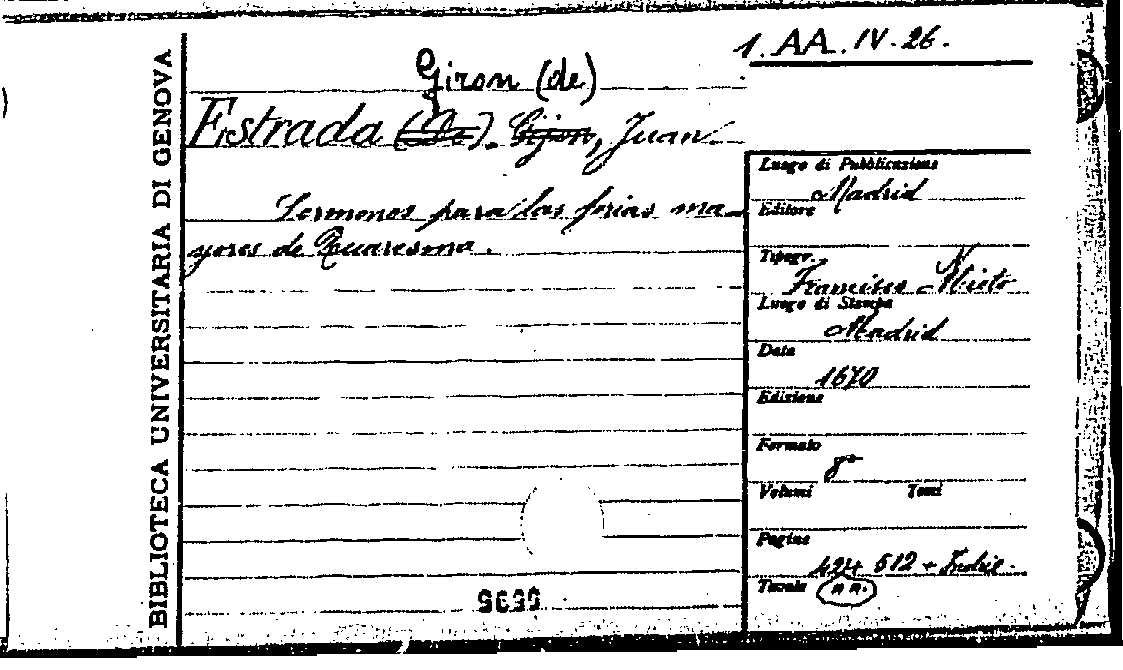 1. AA. IV. 26.
Giron (de)
Estrada (De). Gijon, Juan.
Sermones para las ferias ma-
yores de Quaresma.
BIBLIOTECA UNIVERSITARIA DI GENOVA
Luogo di Pubblicazione
Madrid
Editore
Tipogr.
Francisco Nieto
Luogo di Stampa
Madrid
Data
1670
Edizione
Formato
8°
Volumi Tomi
Pagine
424 512 + Indic.
Tavole